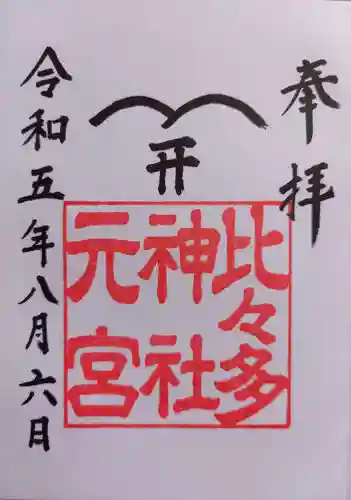 奉拝
开
比々多
神社
元宮
令和五年八月六日